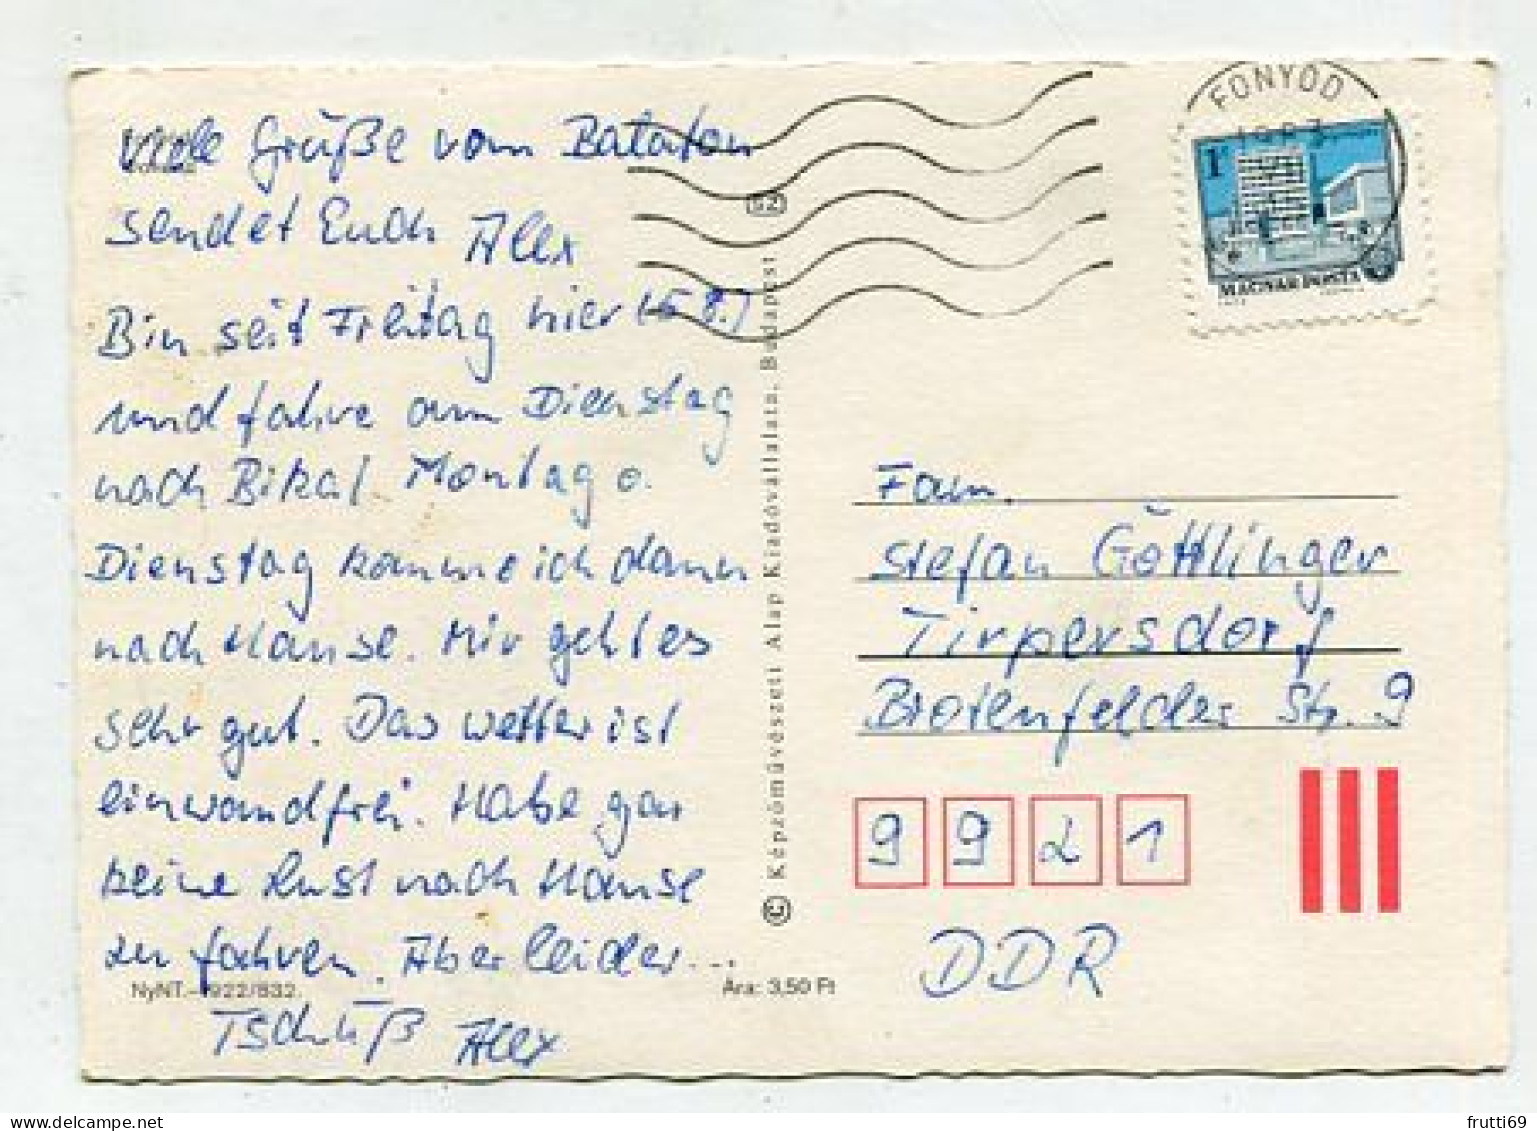 Viele Grüße vom Balaton
sendet Euch Alex
Bin seit Freitag hier (5.8.)
und fahre am Dienstag
nach Bikal. Montag o.
Dienstag komme ich dann
nach Hause. Mir geht es
sehr gut. Das Wetter ist
einwandfrei. Habe gar
keine Lust nach Hause
zu fahren. Aber leider...
Tschüß Alex
NyNT.–922/832.
Ára: 3,50 Ft
SZ
© Képzőművészeti Alap Kiadóvállalata, Budapest
FONYÓD
1Ft
MAGYAR POSTA
Fam.
Stefan Göttlinger
Tirpersdorf
Brotenfelder Str. 9
9921
DDR
frutti69